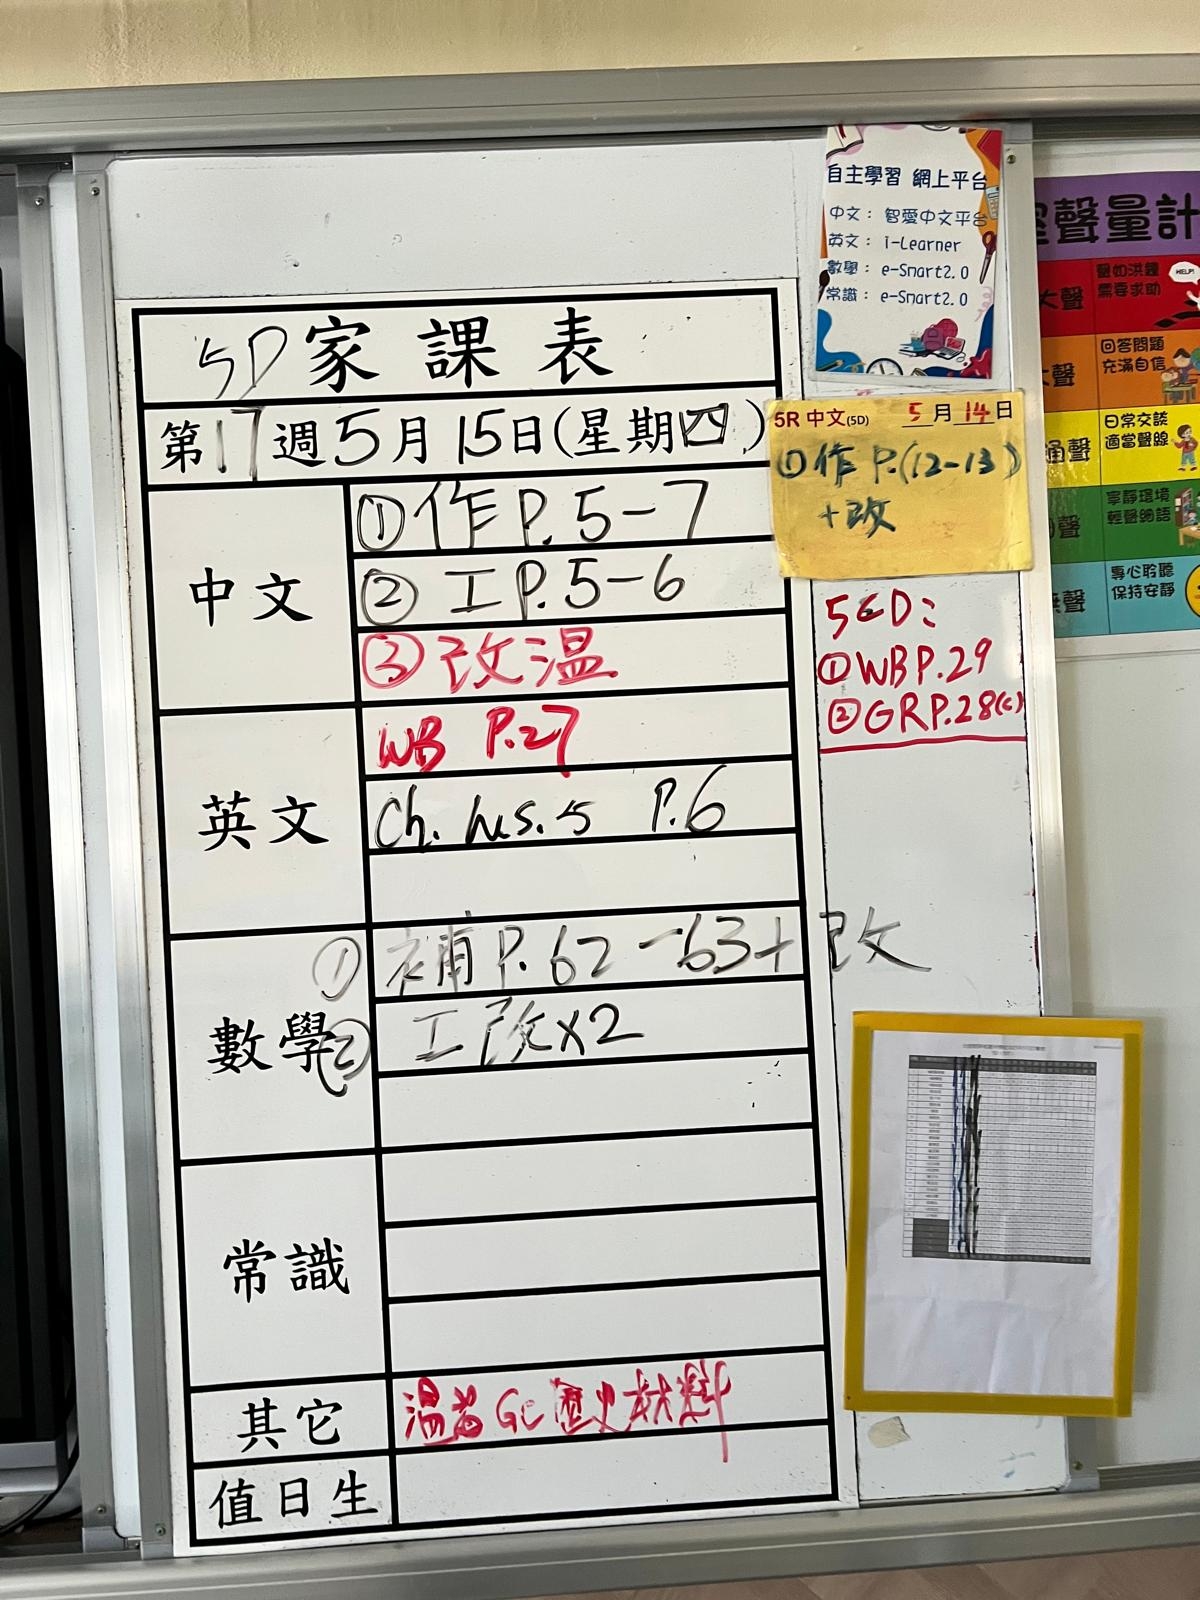 5D家課表
第17週5月15日(星期四)
中文
①作P.5-7
②工P.5-6
③改溫
英文
WB P.27
Ch. Lus.5 P.6
數學
①補P.62-63+改
②工改x2
常識
其它
溫 GC歷史材料
值日生
自主學習 網上平台
中文：智愛中文平台
英文：i-Learner
數學：e-Smart2.0
常識：e-Smart2.0
5R 中文(5D) 5月14日
①作P.(12-13)
+改
5CD:
①WBP.29
②GRP.28(c)
聲量計
大聲
聲如洪鐘
需要求助
HELP!
大聲
回答問題
充滿自信
通聲
日常交談
適當聲線
聲
寧靜環境
輕聲細語
聲
專心聆聽
保持安靜